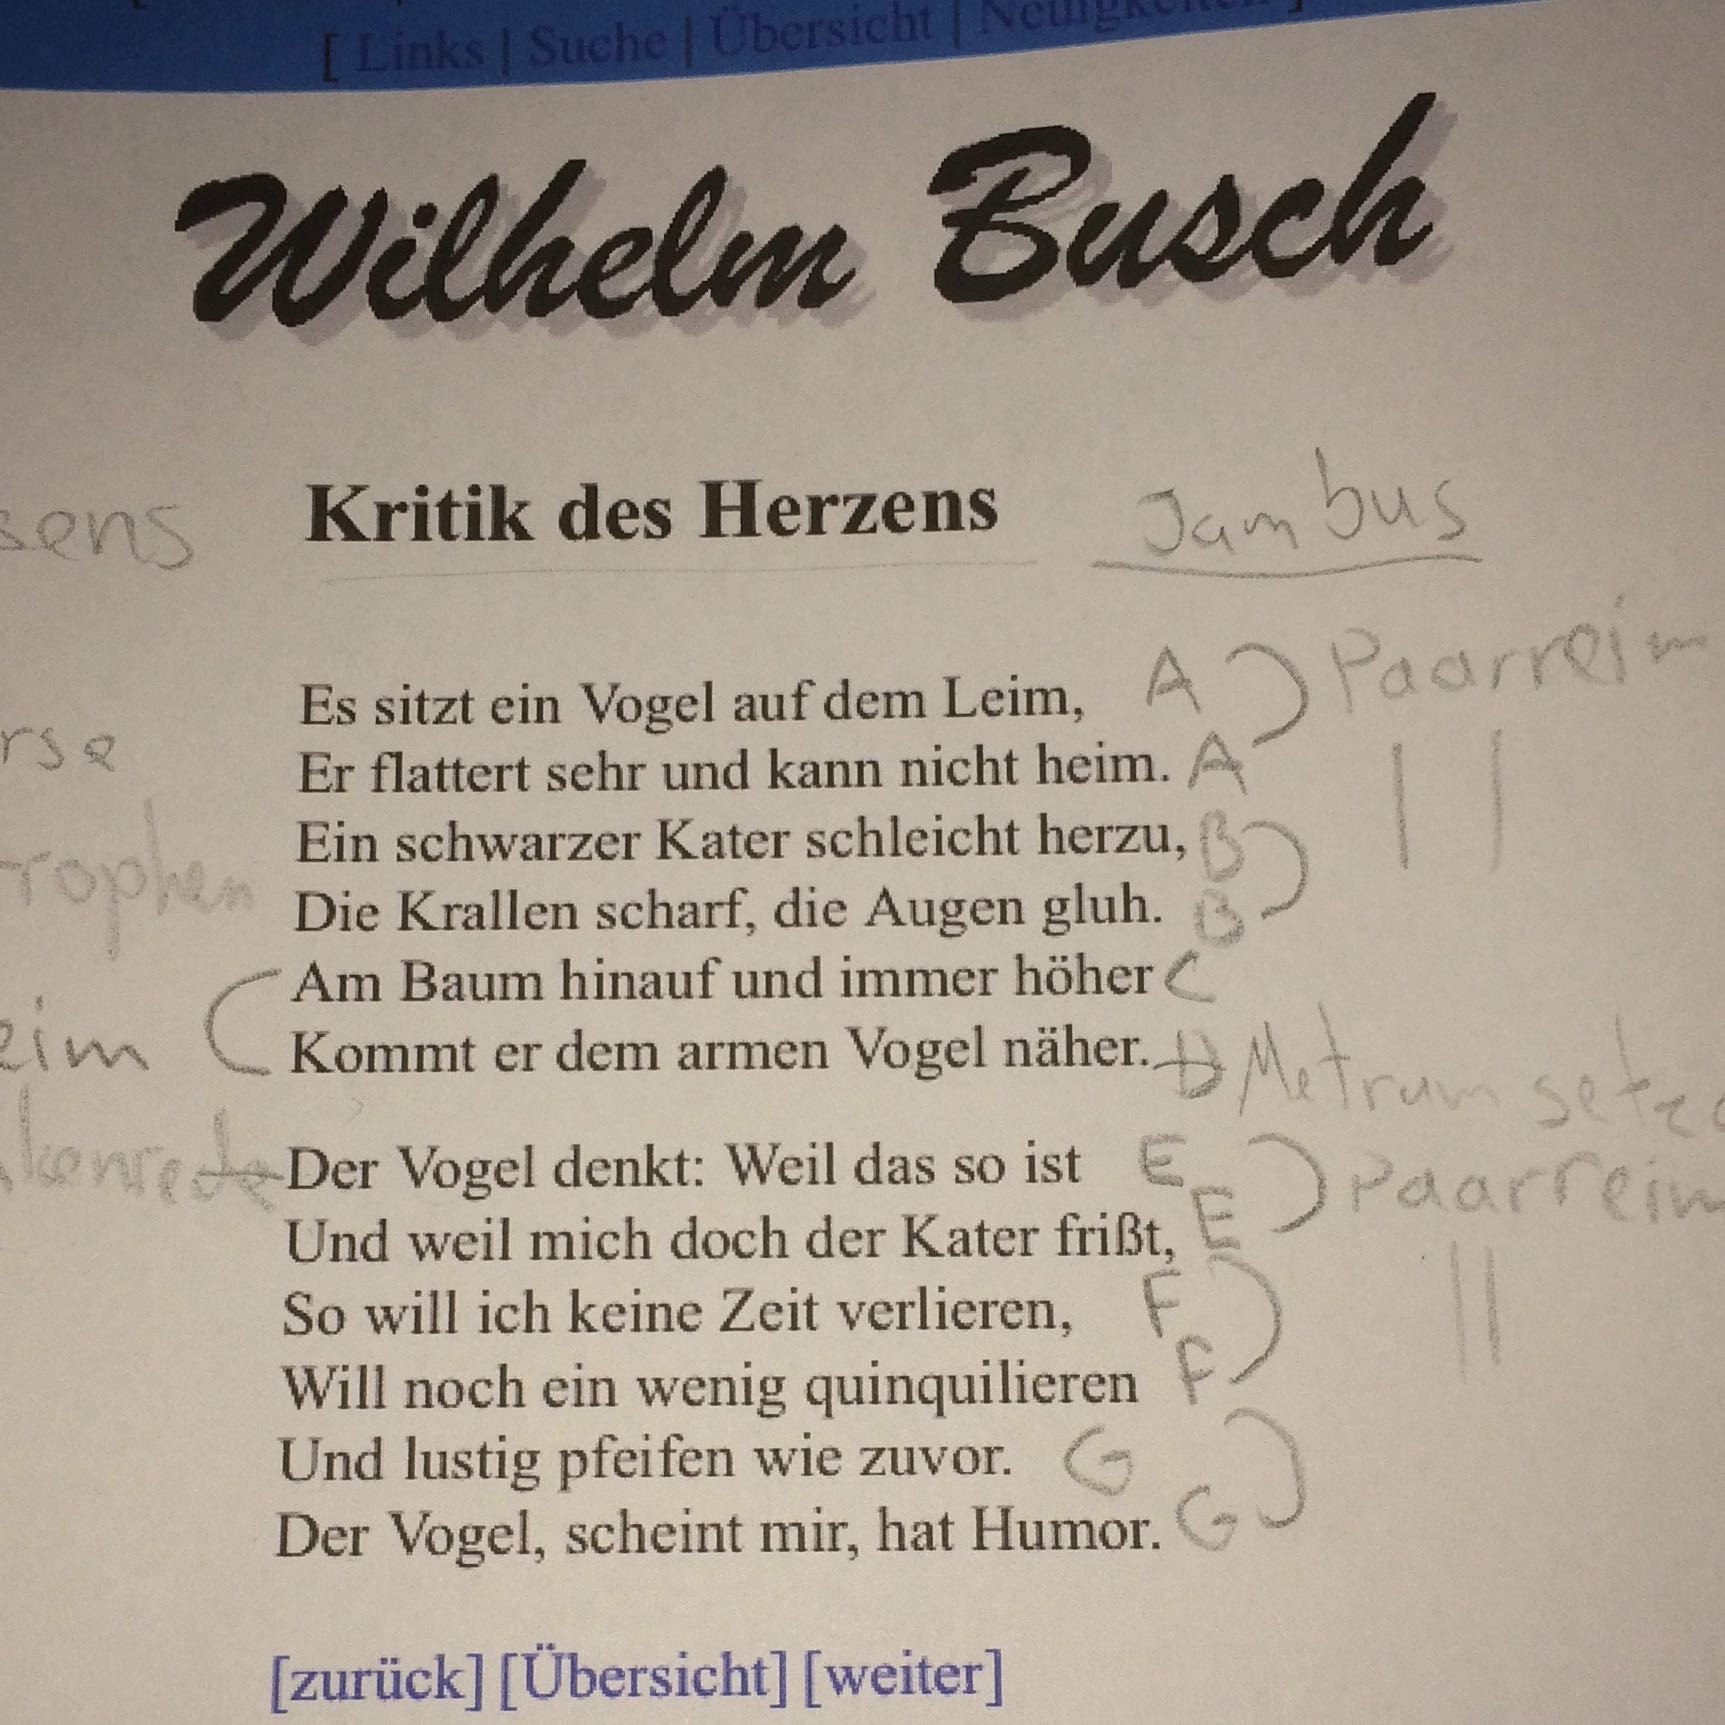 [ Links | Suche | Übersicht | Neuigkeiten ]
Wilhelm Busch
sens Kritik des Herzens Jambus
Es sitzt ein Vogel auf dem Leim, A Paarreim
rse Er flattert sehr und kann nicht heim. A
Ein schwarzer Kater schleicht herzu, B
trophen Die Krallen scharf, die Augen gluh. B
Am Baum hinauf und immer höher C
eim Kommt er dem armen Vogel näher. D Metrum
kenrede Der Vogel denkt: Weil das so ist E Paarreim
Und weil mich doch der Kater frißt, E
So will ich keine Zeit verlieren, F
Will noch ein wenig quinquilieren F
Und lustig pfeifen wie zuvor. G
Der Vogel, scheint mir, hat Humor. G
[zurück] [Übersicht] [weiter]